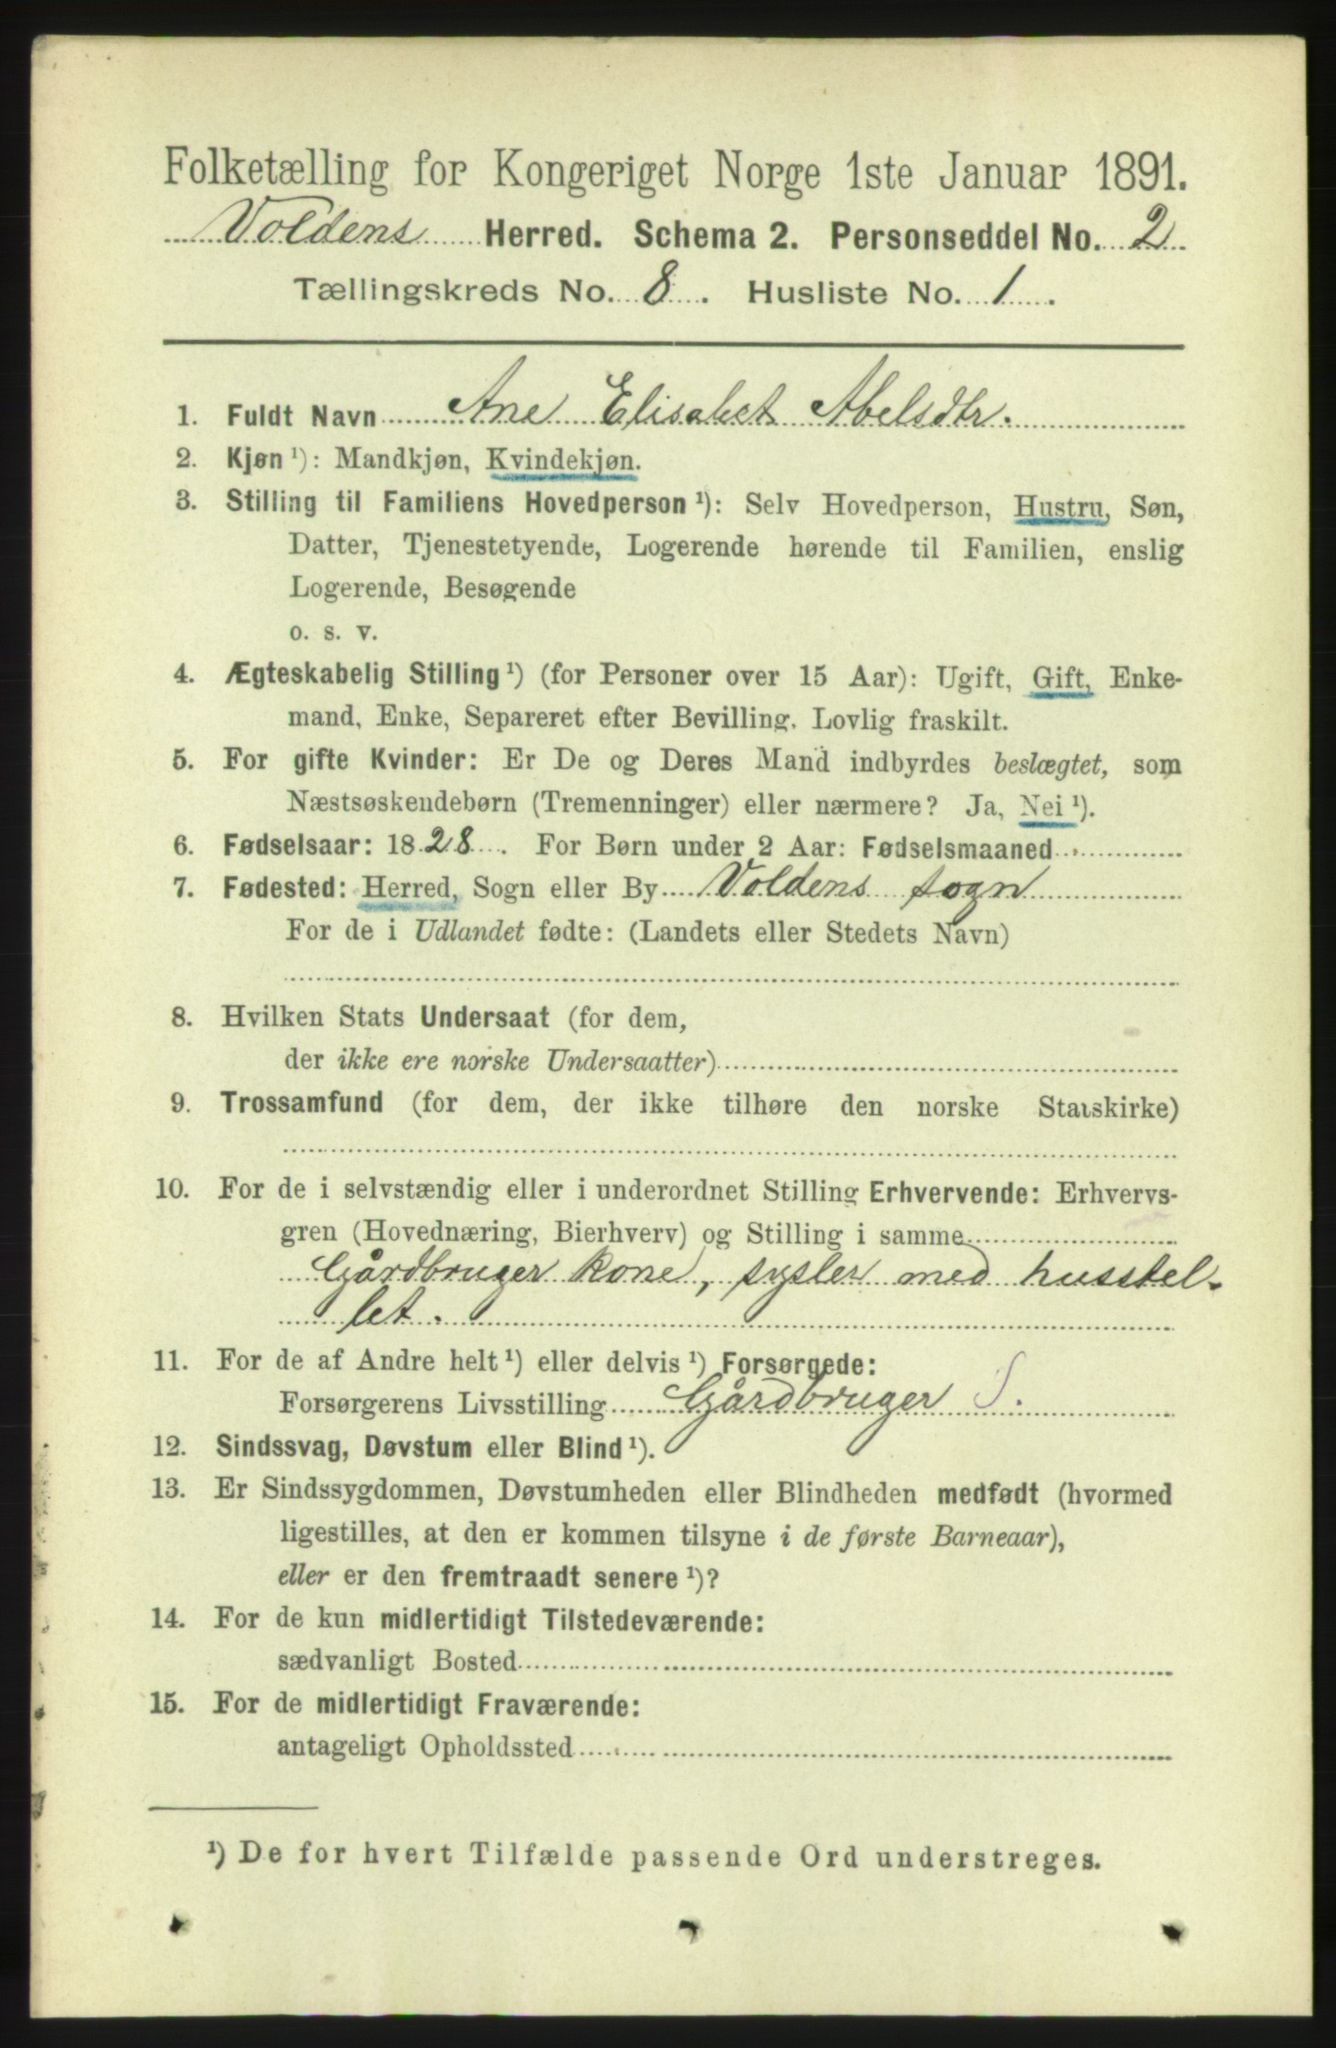 Folketælling for Kongeriget Norge 1ste Januar 1891.
Voldens Herred. Schema 2. Personseddel No. 2
Tællingskreds No. 8. Husliste No. 1.
1. Fuldt Navn Ane Elisabet Abelsdtr.
2. Kjøn ¹): Mandkjøn, Kvindekjøn.
3. Stilling til Familiens Hovedperson ¹): Selv Hovedperson, Hustru, Søn,
Datter, Tjenestetyende, Logerende hørende til Familien, enslig
Logerende, Besøgende
o. s. v.
4. Ægteskabelig Stilling ¹) (for Personer over 15 Aar): Ugift, Gift, Enke-
mand, Enke, Separeret efter Bevilling. Lovlig fraskilt.
5. For gifte Kvinder: Er De og Deres Mand indbyrdes beslægtet, som
Næstsøskendebørn (Tremenninger) eller nærmere? Ja, Nei ¹).
6. Fødselsaar: 1828. For Børn under 2 Aar: Fødselsmaaned
7. Fødested: Herred, Sogn eller By Voldens sogn
For de i Udlandet fødte: (Landets eller Stedets Navn)
8. Hvilken Stats Undersaat (for dem,
der ikke ere norske Undersaatter)
9. Trossamfund (for dem, der ikke tilhøre den norske Statskirke)
10. For de i selvstændig eller i underordnet Stilling Erhvervende: Erhvervs-
gren (Hovednæring, Bierhverv) og Stilling i samme
Gårdbruger kone, sysler med husstel-
let.
11. For de af Andre helt ¹) eller delvis ¹) Forsørgede:
Forsørgerens Livsstilling Gårdbruger S.
12. Sindssvag, Døvstum eller Blind ¹).
13. Er Sindssygdommen, Døvstumheden eller Blindheden medfødt (hvormed
ligestilles, at den er kommen tilsyne i de første Barneaar),
eller er den fremtraadt senere ¹)?
14. For de kun midlertidigt Tilstedeværende:
sædvanligt Bosted
15. For de midlertidigt Fraværende:
antageligt Opholdssted
¹) De for hvert Tilfælde passende Ord understreges.